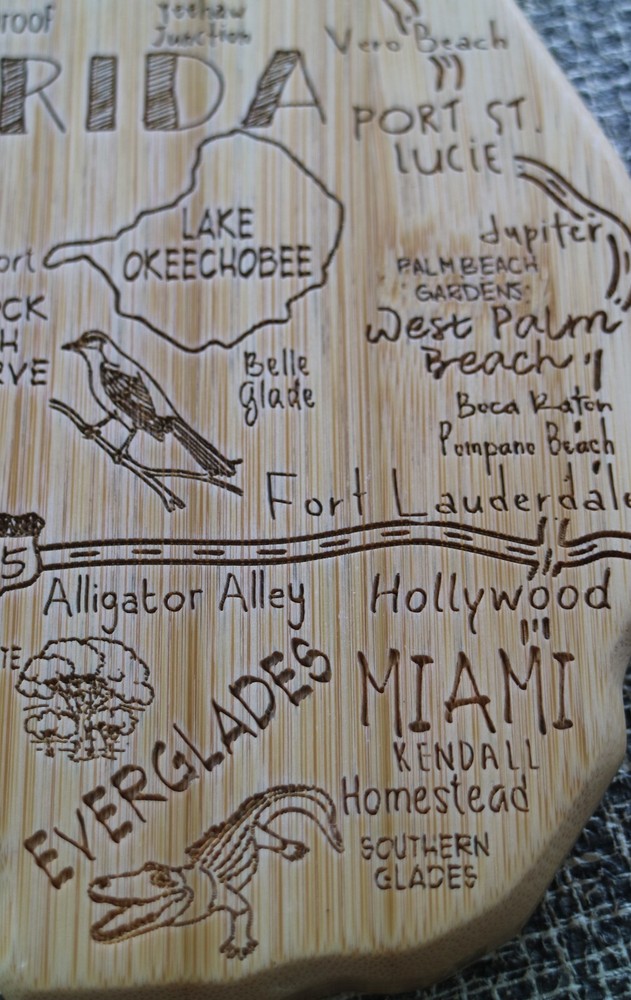 roof
Yeehaw
Junction
Vero Beach
RIDA
PORT ST.
LUCIE
LAKE
OKEECHOBEE
ort
Jupiter
PALM BEACH
GARDENS
CK
H
RVE
West Palm
Beach
Belle
Glade
Boca Raton
Pompano Beach
Fort Lauderdale
5
Alligator Alley
Hollywood
TE
EVERGLADES
MIAMI
KENDALL
Homestead
SOUTHERN
GLADES